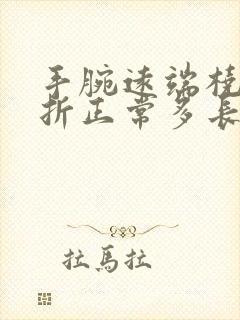 手腕遠端橈
折正常多長
拉馬拉